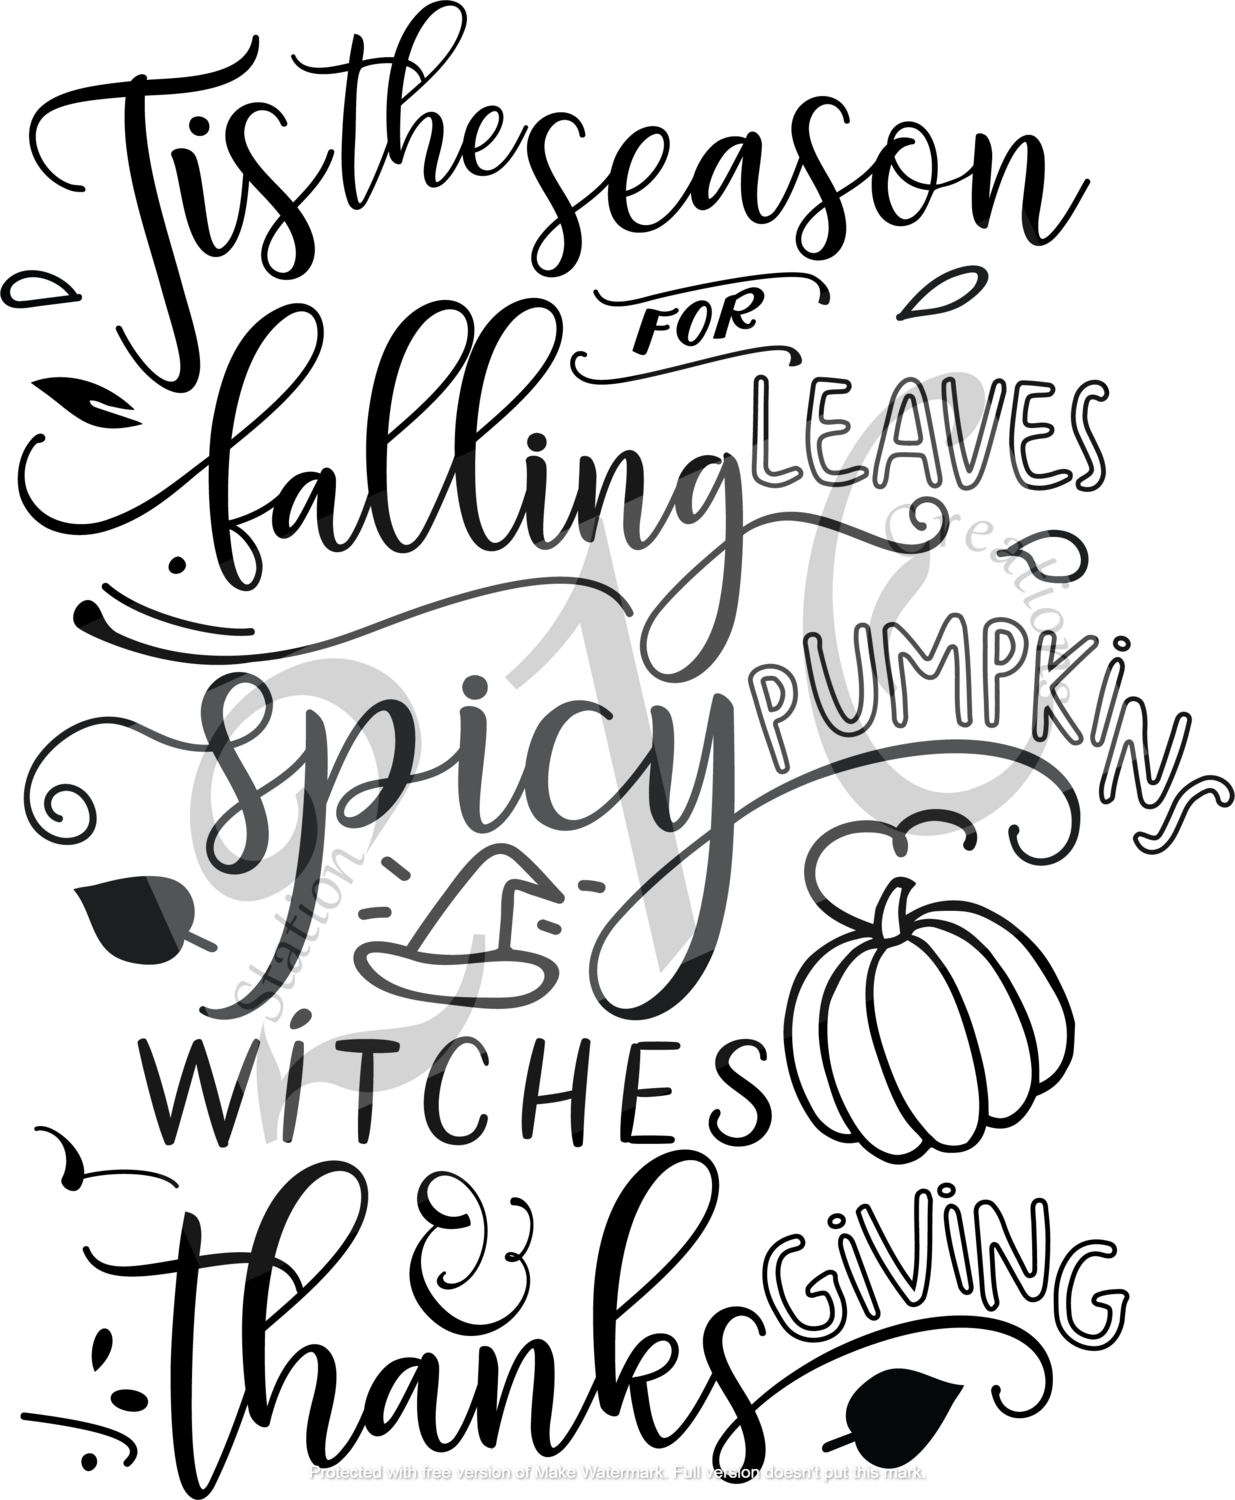 Tis the season
FOR
falling LEAVES
spicy PUMPKiNS
WiTCHES
&
thanks GiViNG
Station
Creations
Protected with free version of Make Watermark. Full version doesn't put this mark.